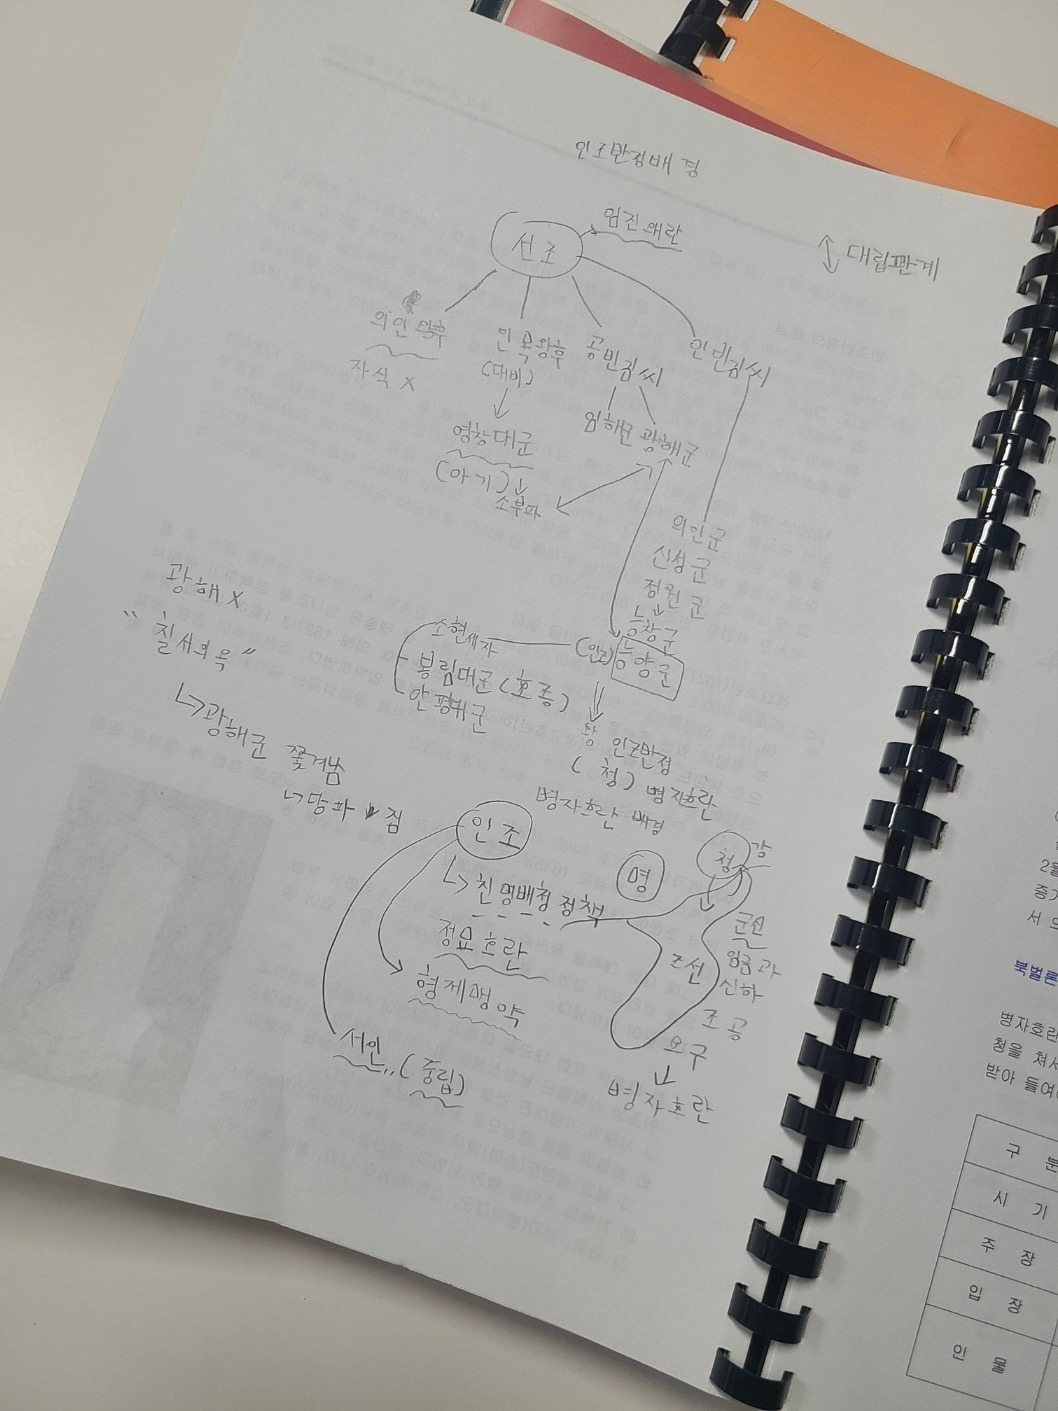 인조반정배경
임진왜란
선조
대립관계
의인왕후
자식 X
인목왕후
(대비)
공빈김씨
인빈김씨
영창대군
(아기)
소북파
임해군 광해군
의안군
신성군
정원군
능창군
(인조) 능양군
소현세자
봉림대군 (효종)
안평대군
광해 X
광해군 쫓겨남
당파
짐
왕 인조반정
(청) 병자호란
병자호란 배경
인조
친명배청정책
명
청
강
정묘호란
형제맹약
군신
임금과
신하
조선
조공
요구
병자호란
서인..(중립)
2월
서
북벌론
병자호란
받아 들여
구 분
시 기
주 장
입 장
인 물